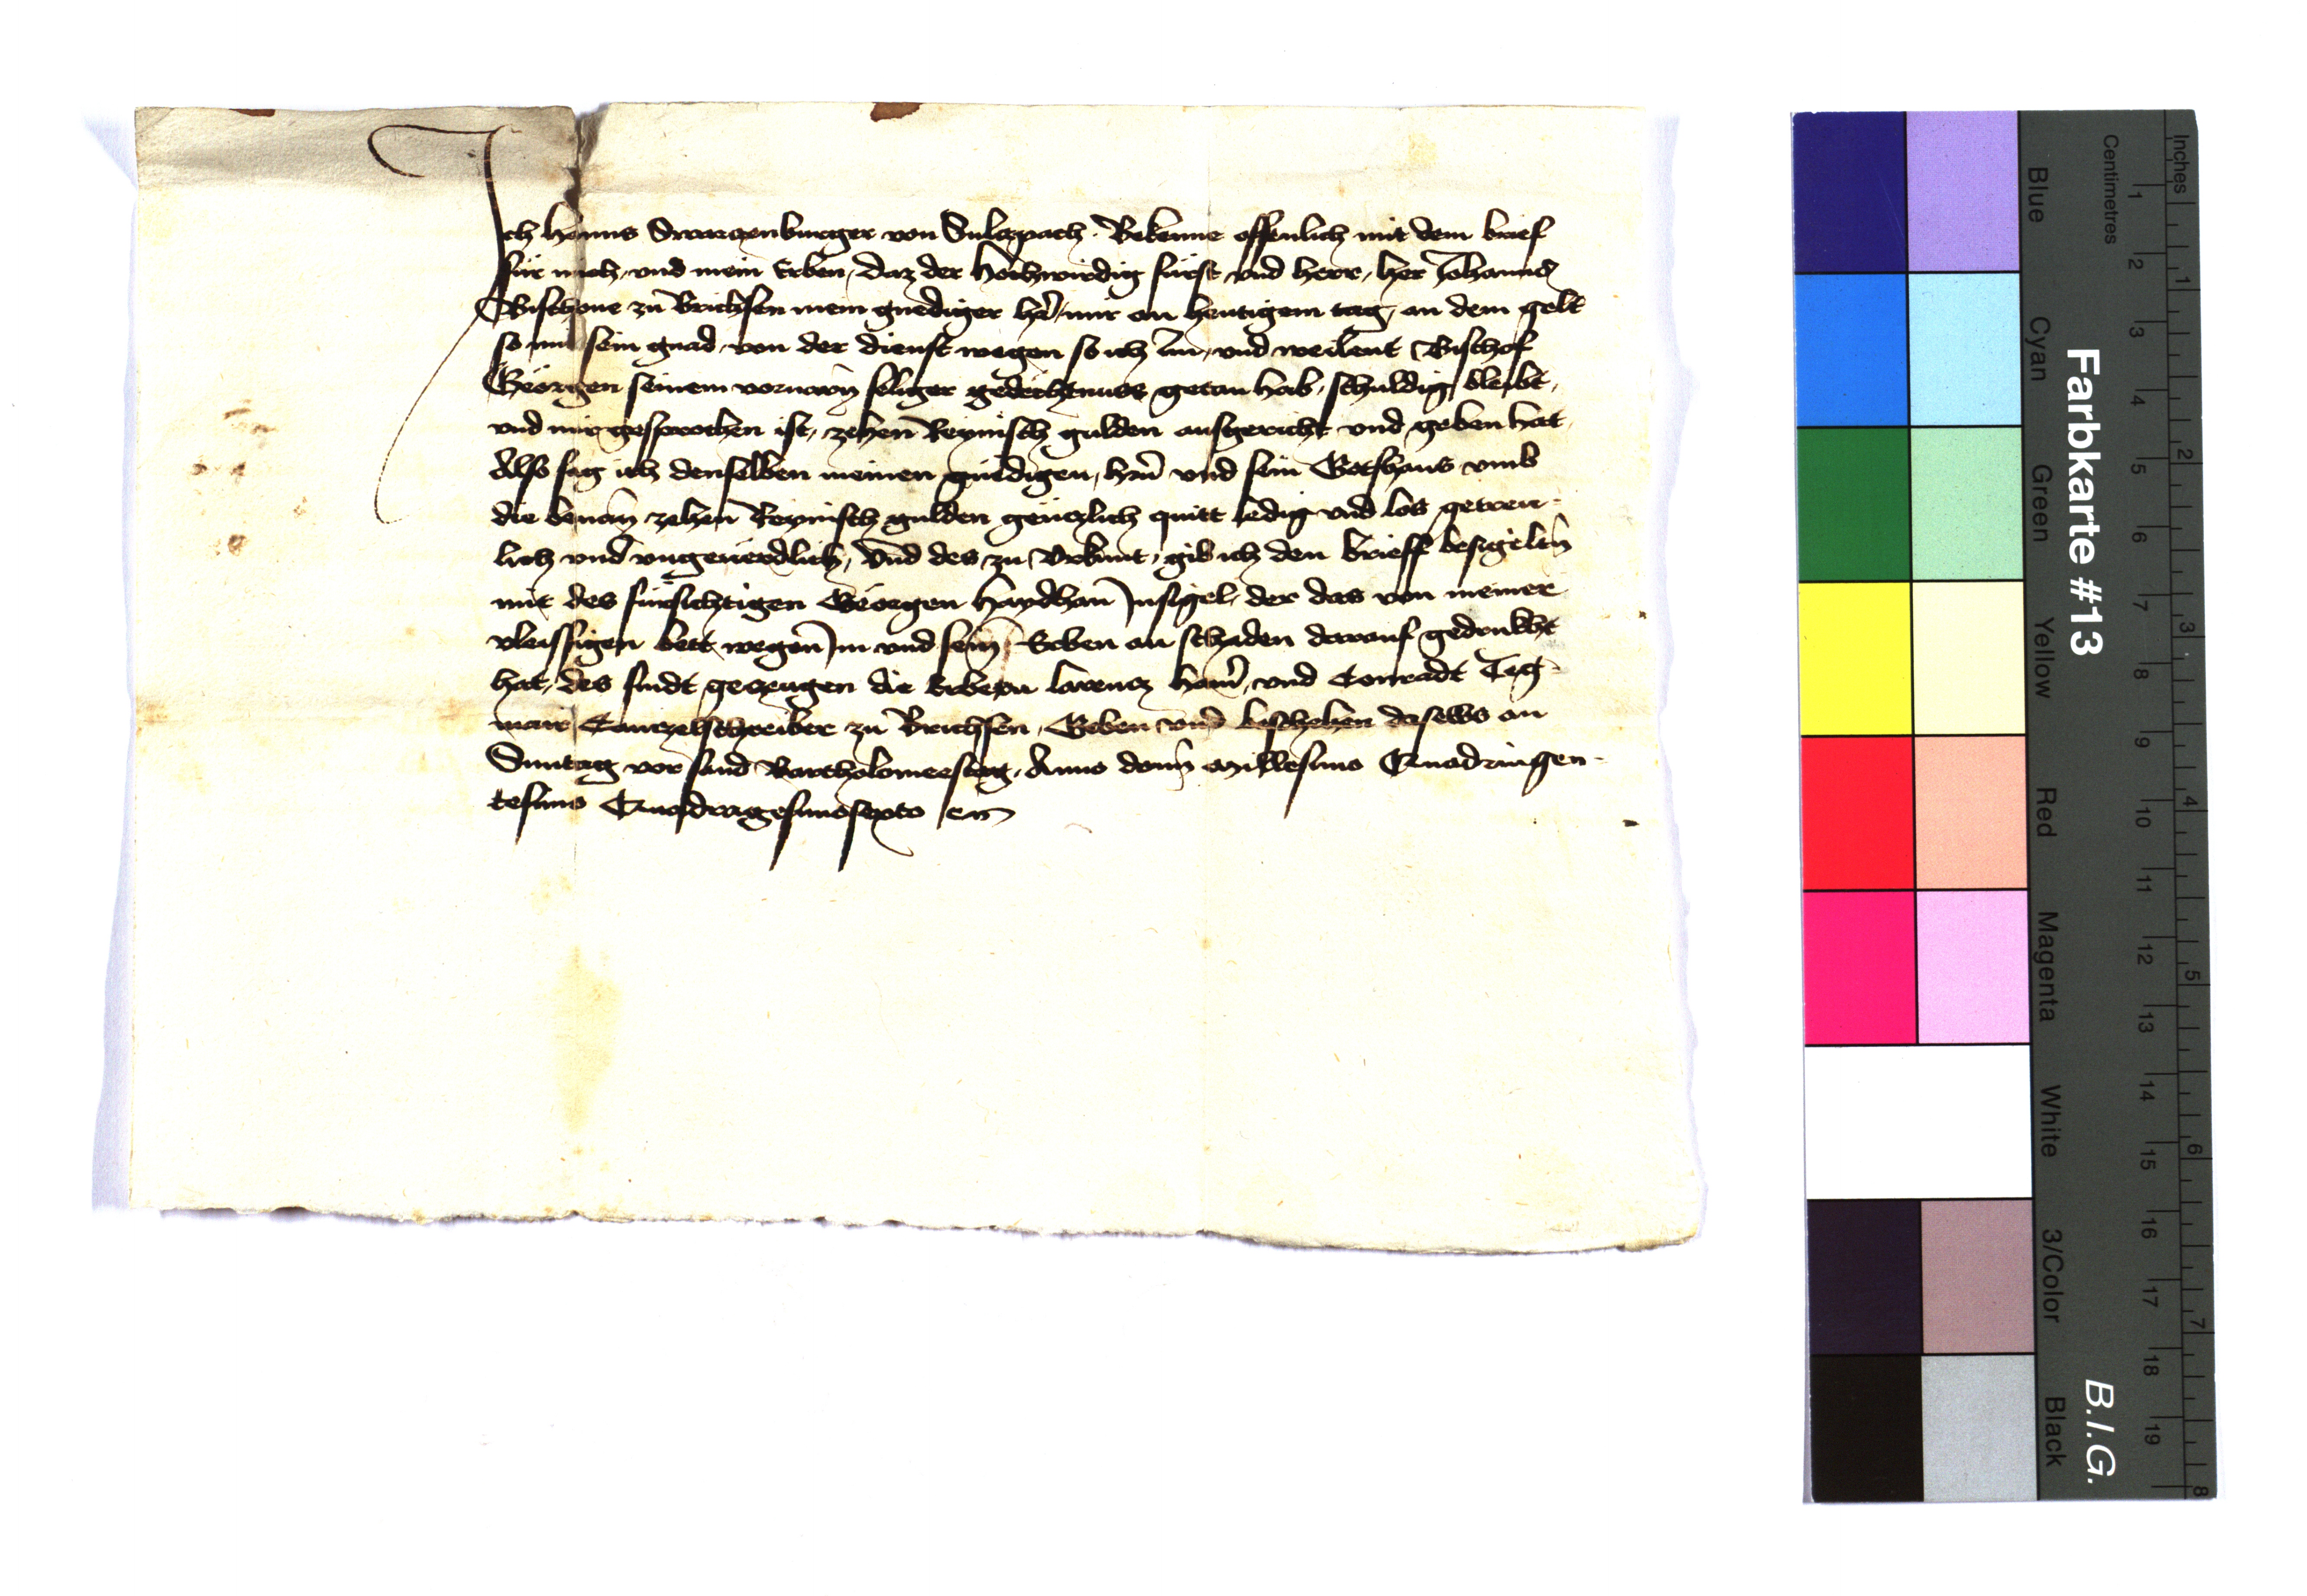 Ich Hanns Swarczenburger von Sulczpach. Bekenne offenlich mit dem brief
für mich, und mein Erben, daz der Hochwirdig fürst und herr, her Johanns
Bischoue zu Brichsen mein gnediger h're mir an heutigem tag, an dem gelt
so mir sein gnad von der dienst wegen so ich im, und weilent Bischof
Geörgen seinem voruarn seliger gedechtnuss getan hab, schuldig bleibt,
und mir gesprochen ist, zehen Reynisch gulden ausgericht und geben hat.
Also sag ich denselben meinen gnedigen, h'rn und sein Gotshaus umb
die benan zehen Reynisch gulden genczlich quitt ledig und los getreu-
lich und ungeuerdlich, Und des zu Urkunt, gib ich den brieff besigelten
mit des fürsichtigen Geörgen Haydhan Insigel, der das von meiner
vleissigen bett wegen Im und sein Erben an schaden darauf gedrukht
hat, des sindt geczeugen die Erbern lorencz ham', und Conradt Teg-
mair Canczelschreiber zu Brichsen, Geben und beschehen daselbs an
Sunntag vor sand Bartholomeestag. Anno domi millesimo Quadringen-
tesimo Quadragesimosexto etc
Farbkarte #13
B.I.G.
Inches
Centimetres
1 2 3 4 5 6 7 8 9 10 11 12 13 14 15 16 17 18 19
1 2 3 4 5 6 7 8
Blue
Cyan
Green
Yellow
Red
Magenta
White
3/Color
Black